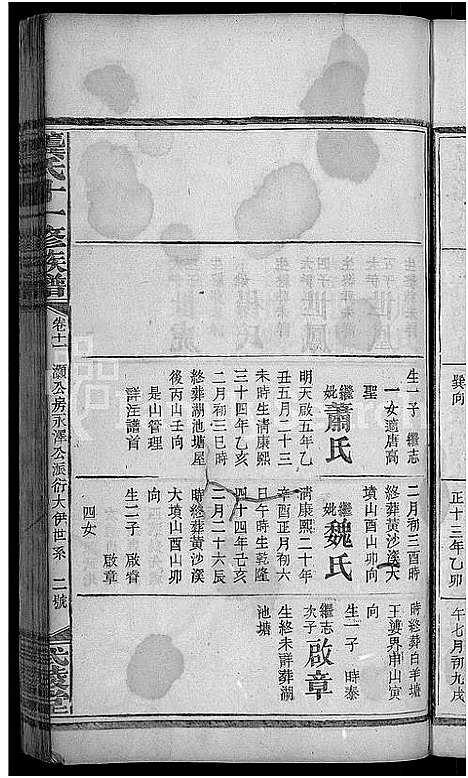 氏十一修族譜
卷十一
灝公房永澤公派衍大伊世系
二號
巽向
生一子 繼志
一女適唐高
聖
繼妣蕭氏
明天啟五年乙
丑五月二十三
未時生清康熙
三十四年乙亥
二月初三巳時
終葬湖池塘屋
後丙山壬向
是山管理
詳注譜首
正十三年乙卯
二月初三酉時
終葬黃沙溪大
墳山酉山卯向
繼妣魏氏
清康熙二十年
辛酉正月初六
日午時生乾隆
四十四年己亥
二月二十六辰
時終葬黃沙溪
大墳山酉山卯
向
生二子 啟睿
啟章
四女
午年七月初九戌
時終葬白羊塘
王婆界甲山寅
向
生一子 時泰
繼志次子啟章
生終未詳葬湖
池塘